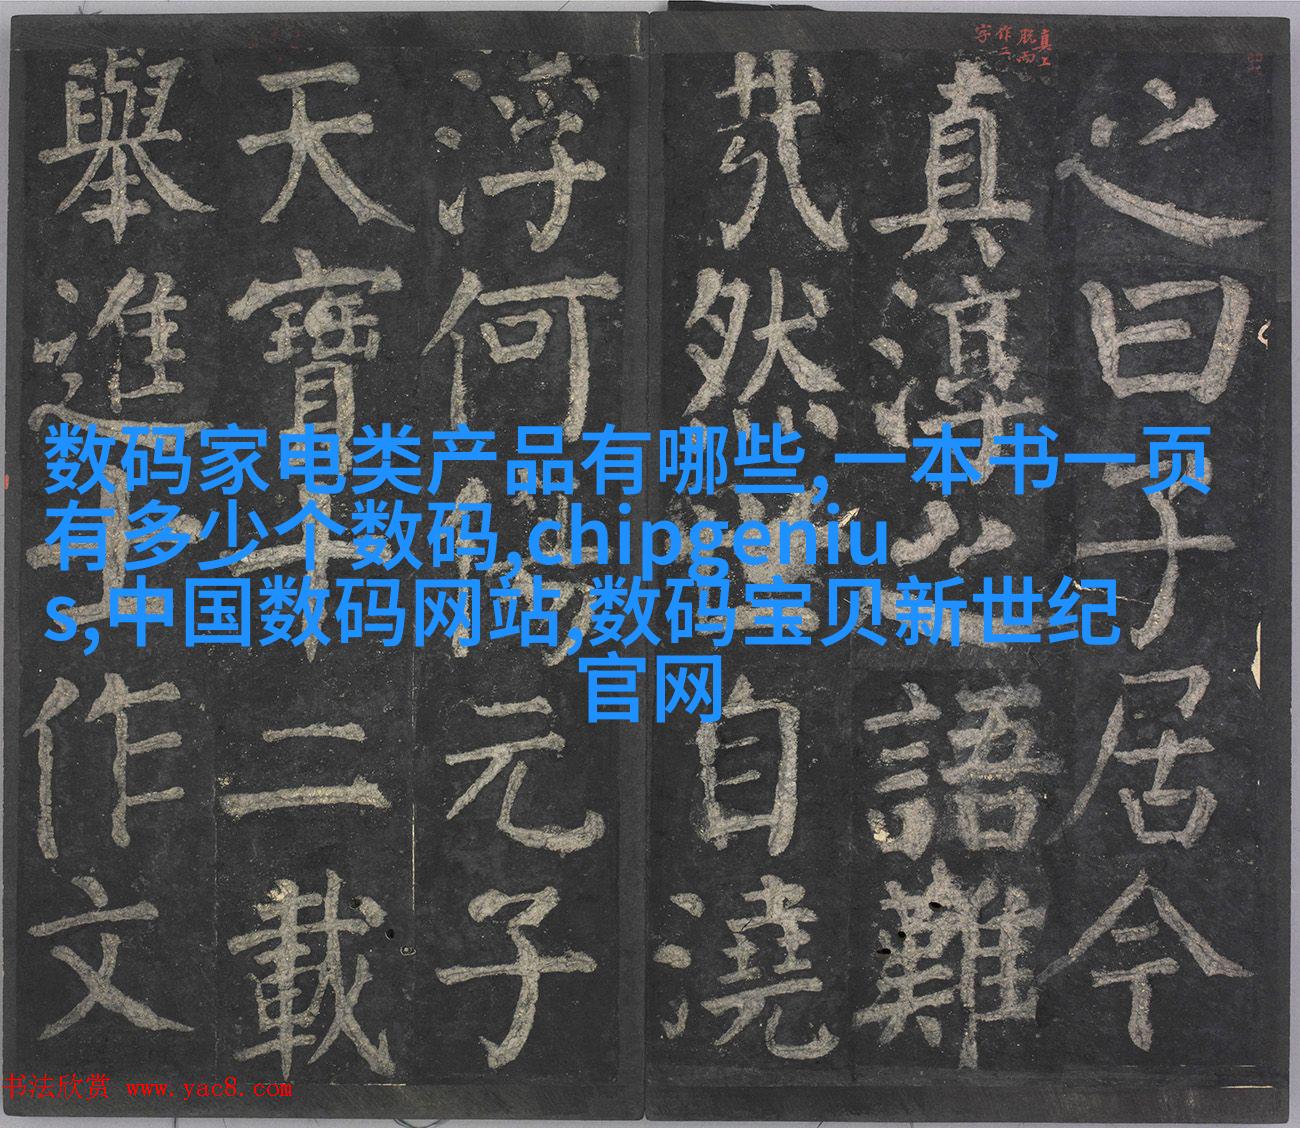 数码家电类产品有哪些,一本书一页
有多少个数码,chipgeniu
s,中国数码网站,数码宝贝新世纪
官网
真上
脱而
作二
字
之曰子居今
真淳之語難
㦲然世自澆
浮何傷元子
天寶十二載
舉進士作文
书法欣赏 www.yac8.com